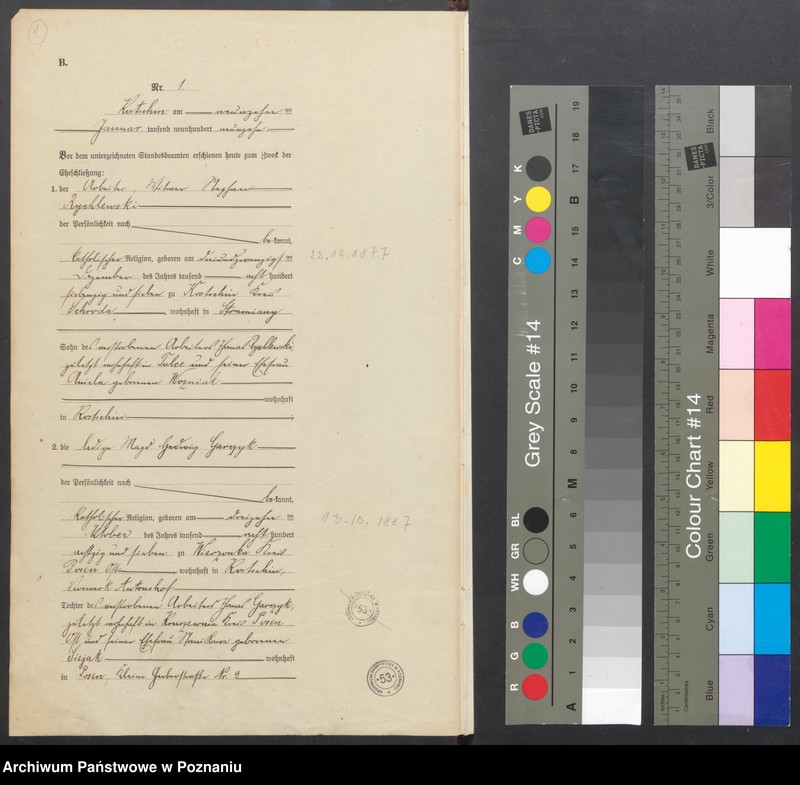 1
B.
Nr. 1.
Kostschin am neunzehnten
Januar tausend neunhundert neunzehn
Vor dem unterzeichneten Standesbeamten erschienen heute zum Zweck der
Eheschließung:
1. der Arbeiter, Witwer Stephan
Rychlewski
der Persönlichkeit nach
bekannt,
katholischer Religion, geboren am dreiundzwanzigsten
22.12.1877
Dezember des Jahres tausend acht hundert
siebenzig und sieben zu Kostschin Kreis
Schroda wohnhaft in
Sohn des verstorbenen Arbeiters Thomas Rychlewski,
zuletzt wohnhaft in Tulce und seiner Ehefrau
Aniela geborenen Wozniak
wohnhaft
in Kostschin
2. die ledige Magd Hedwig Garczyk
der Persönlichkeit nach
bekannt,
katholischer Religion, geboren am dreizehnten
13.10.1887
Oktober des Jahres tausend acht hundert
achtzig und sieben zu Wierzonka Kreis
Posen Ost wohnhaft in Kostschin,
Vorwerk Antonshof
Tochter des verstorbenen Arbeiters Thomas Garczyk,
zuletzt wohnhaft in Kreis Posen
Ost und seiner Ehefrau Stanislawa geborenen
wohnhaft
in Posen, Kleine Gerberstraße No. 9
53
53
Grey Scale #14
DANES
PICTA
.COM
R G B WH GR BL C M Y K
A 1 2 3 4 5 6 M 8 9 10 11 12 13 14 15 B 17 18 19
Colour Chart #14
DANES
-PICTA
.COM
Blue Cyan Green Yellow Red Magenta White 3/Color Black
Inches
Centimetres
Archiwum Państwowe w Poznaniu